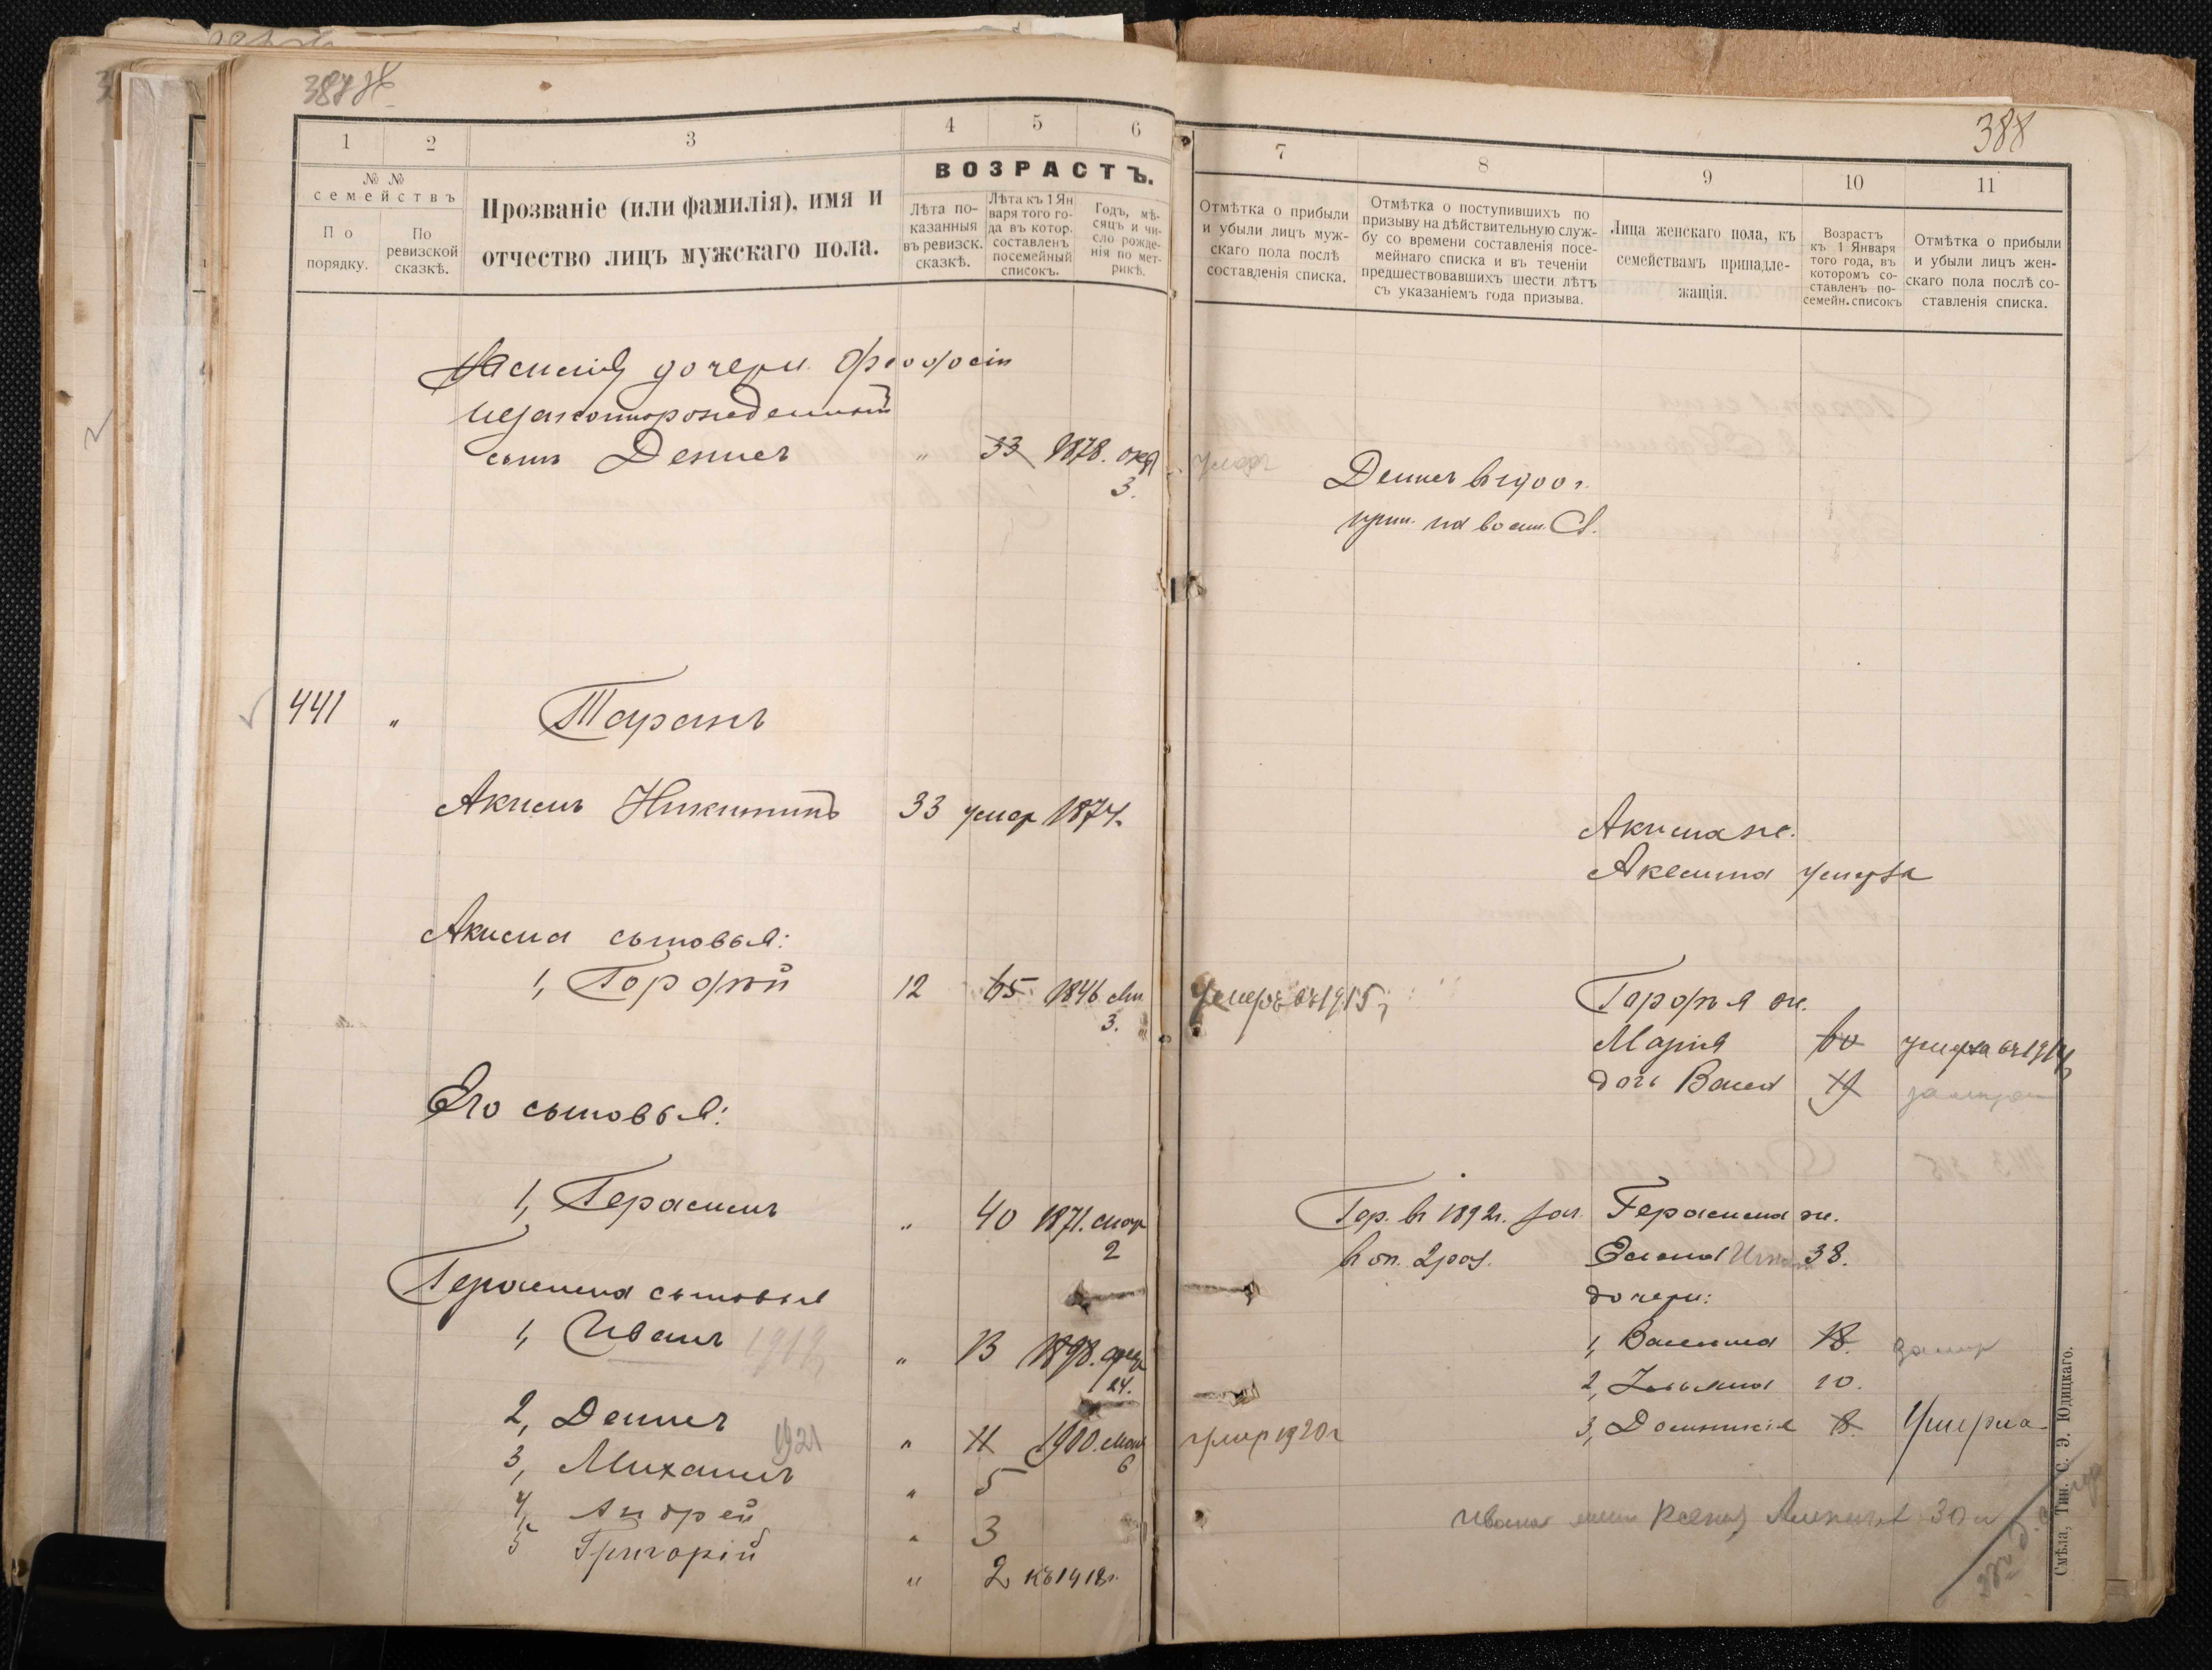 387
388
1
2
3
4
5
6
№ №
семействъ
По
порядку.
По
ревизской
сказкѣ.
Прозваніе (или фамилія), имя и
отчество лицъ мужскаго пола.
ВОЗРАСТЪ.
Лѣта по-
казанныя
въ ревизск.
сказкѣ.
Лѣта къ 1 Ян
варя того го-
да въ котор.
составленъ
посемейный
списокъ.
Годъ, мѣ-
сяцъ и чи-
сло рожде-
нія по мет-
рикѣ.
дочери
незаконнорожденный
сынъ Денисъ " 33 1878. окт
3.
441 " Таранъ
Акимъ Никитинъ 33 умер 1874.
Акима сыновья:
1, Горофѣй 12 65 1846.
3.
Его сыновья:
1, Герасимъ " 40 1871. мар
2
Герасима сыновья
1, Иванъ " 13 1898.
24.
2, Денисъ " 11 1900.
6
3, Михаилъ 1921 " 5
4, Андрей " 3
5 Григорій " 2 къ 1918г.
7
8
9
10
11
Отмѣтка о прибыли
и убыли лицъ муж-
скаго пола послѣ
составленія списка.
Отмѣтка о поступившихъ по
призыву на дѣйствительную служ-
бу со времени составленія посе-
мейнаго списка и въ теченіи
предшествовавшихъ шести лѣтъ
съ указаніемъ года призыва.
Лица женскаго пола, къ
семействамъ принадле-
жащія.
Возрастъ
къ 1 Января
того года, въ
которомъ со-
ставленъ по-
семейн. списокъ
Отмѣтка о прибыли
и убыли лицъ жен-
скаго пола послѣ со-
ставленія списка.
умер
Денисъ въ 1900 г.
Акима ж.
Аксинья умерла
умеръ въ 1915 г
Горофѣя ж.
Марія 60 умерла въ 1914
дочь 19
Гер. въ 1892 г.
Герасима ж.
Елена 38.
дочери:
1, Василина 18.
2, 10.
3, Домникія 8. Умерла
умер 1920 г
Ивана
Смѣла, Тип. С. Э. Юдицкаго.